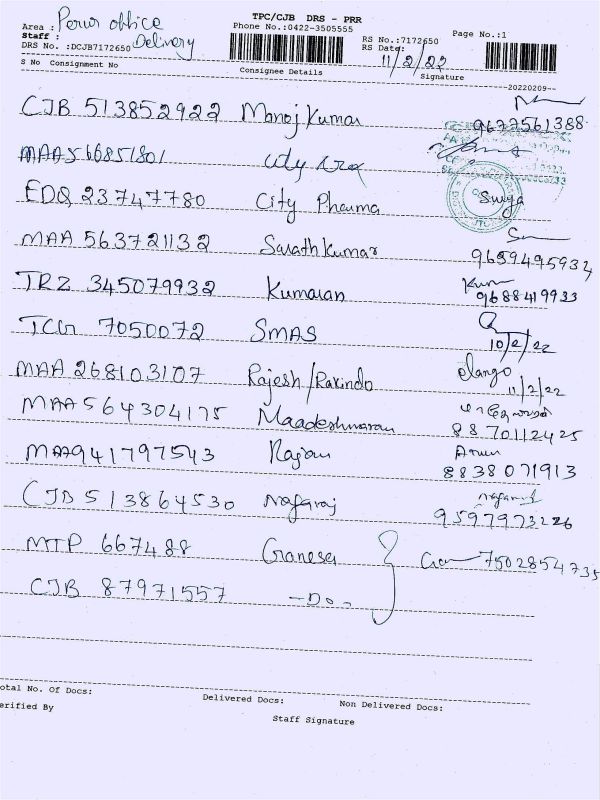 TPC/CJB DRS - PRR
Area : Perur office
Phone No.:0422-3505555
Staff : Delivery
RS No.:7172650 Page No.:1
DRS No. :DCJB7172650
RS Date: 11/2/22
S No Consignment No Consignee Details Signature
--20220209--
CJB 513852922 Manoj Kumar 9677561388
MAA566851801 city
EDQ 23747780 City Pharma Surya
MAA 563721132 Sarath Kumar 9659495934
TRZ 345079932 Kumaran Kum 9688419933
TCG 7050072 SMAS 10/2/22
MAA 268103107 Rajesh/Rakindo elango 11/2/22
MAA564304175 Maadeshwaran 8870112425
MAA941797543 Rajan Arun 8838071913
CJB513864530 Nagaraj 9597973226
MTP 667488 Ganesa 7502854735
CJB 87971557 -Do-
otal No. Of Docs: Delivered Docs: Non Delivered Docs:
erified By Staff Signature